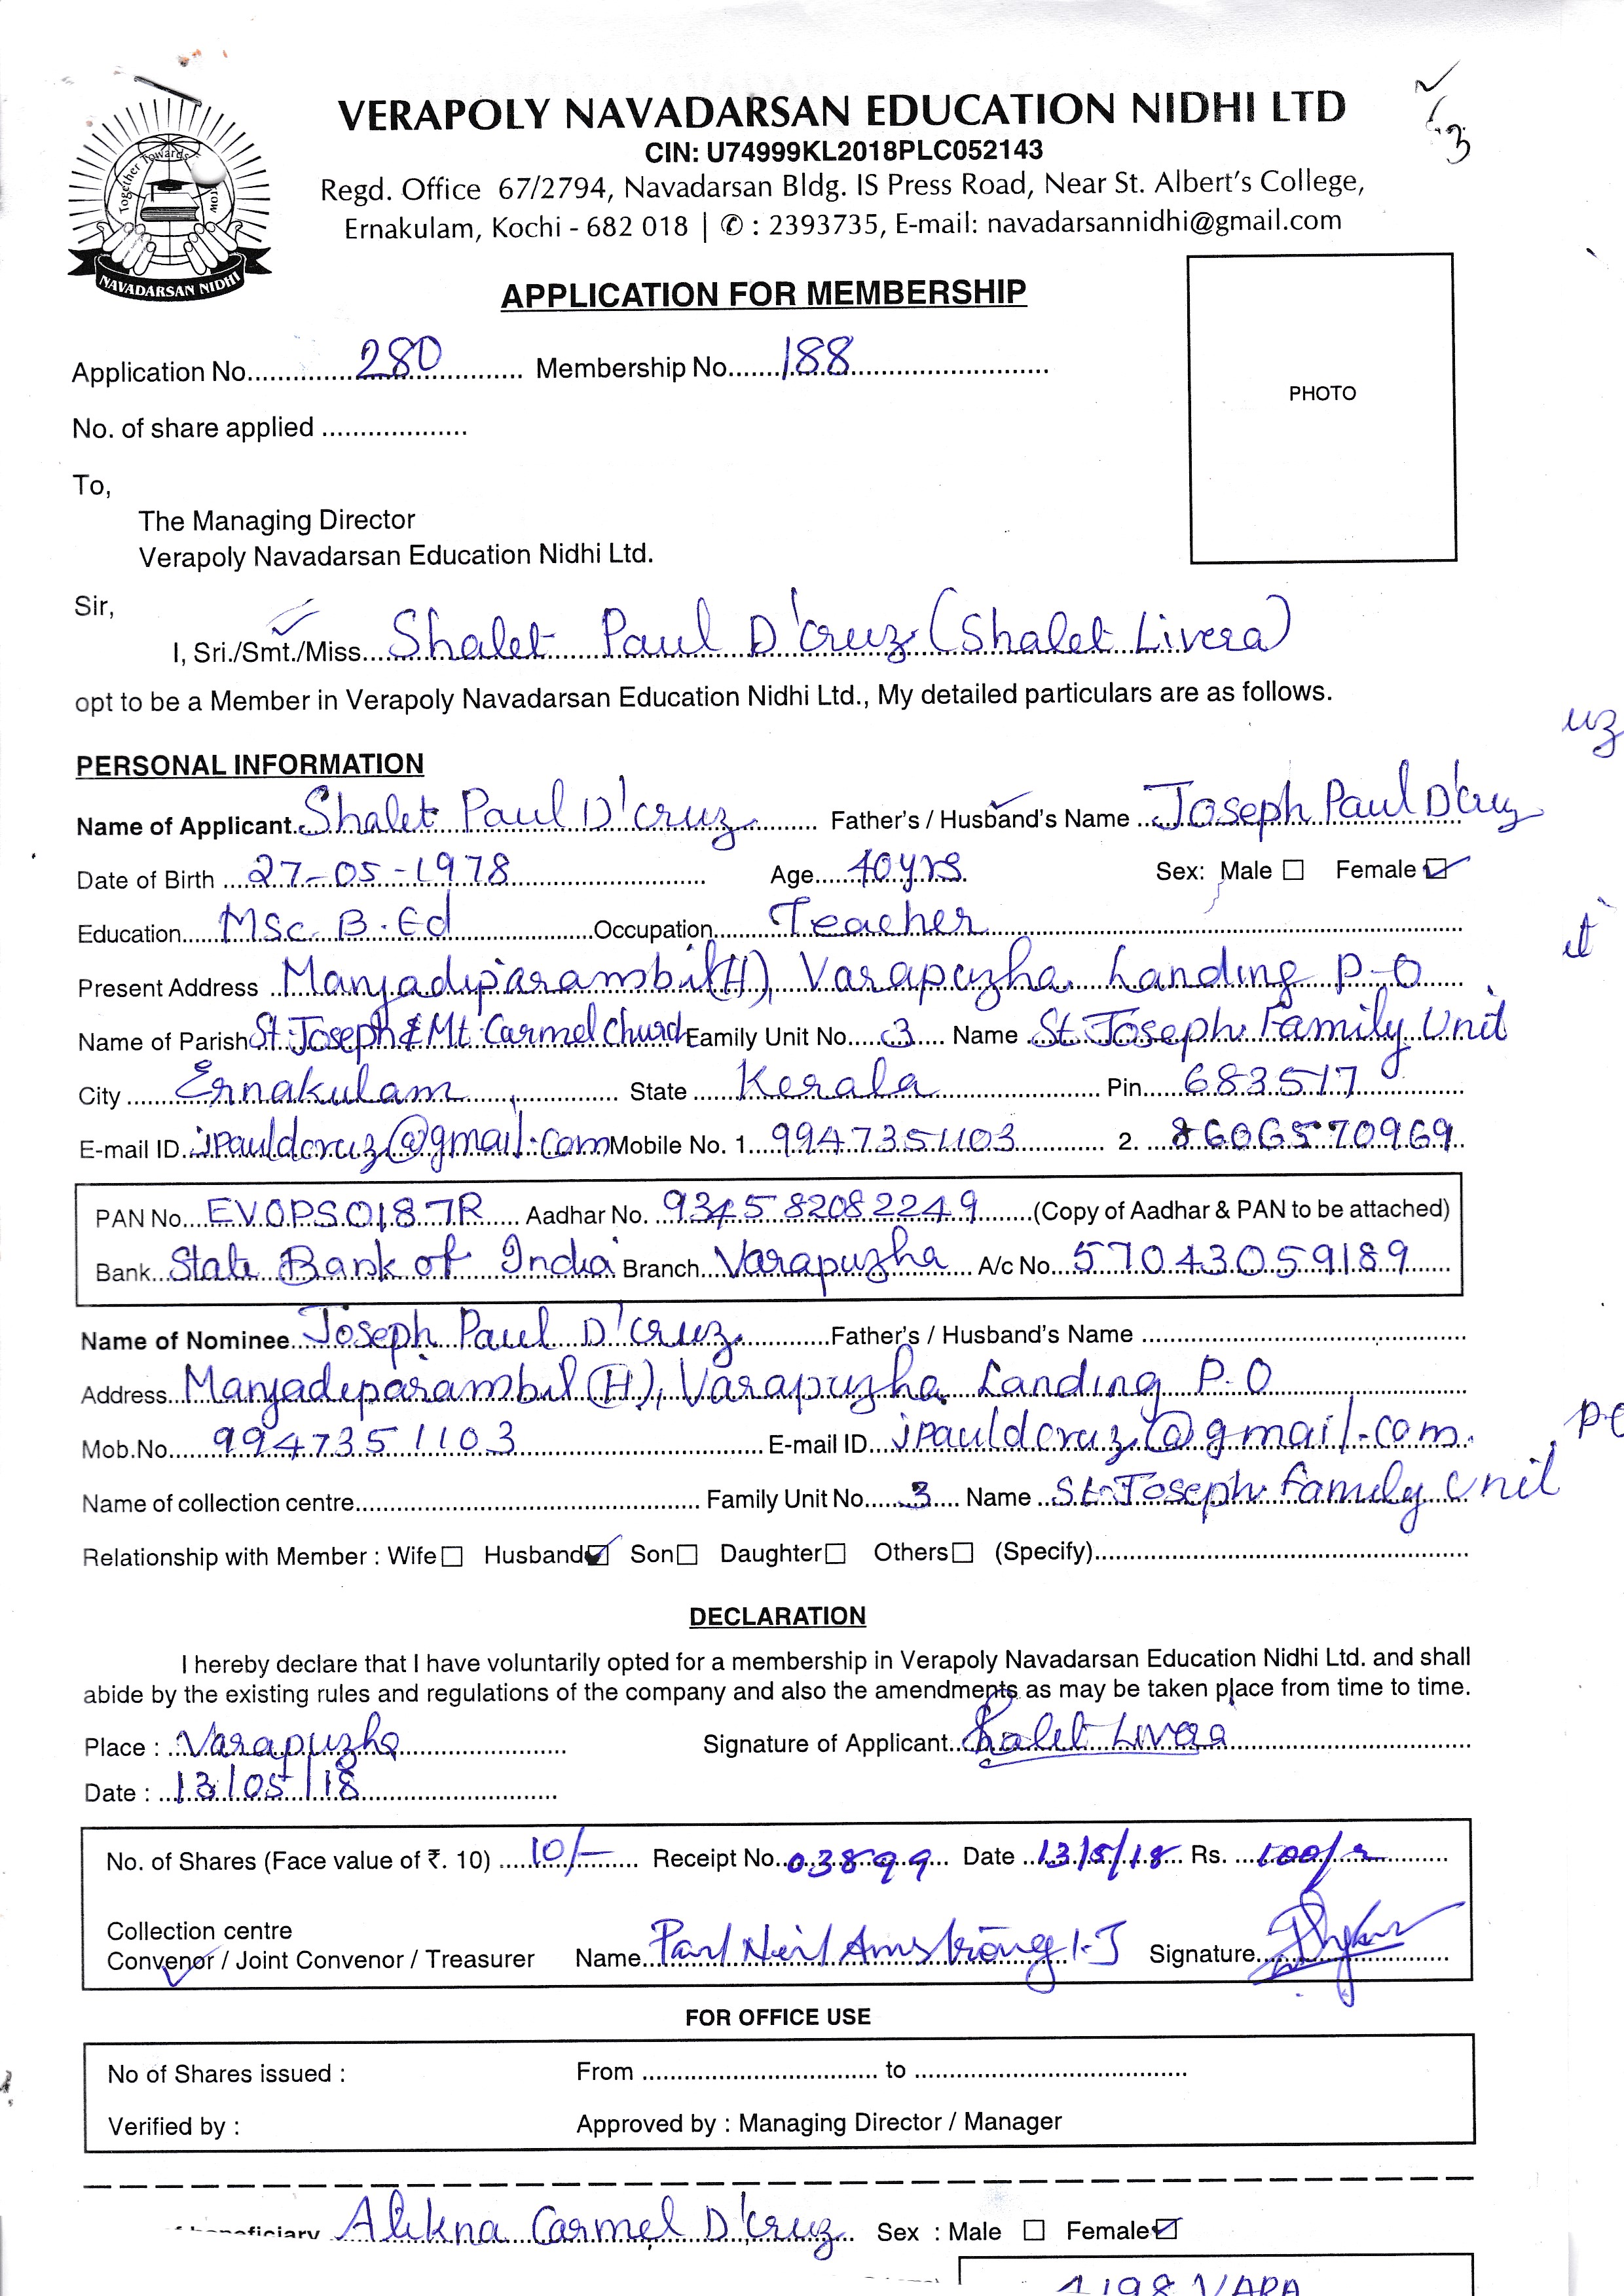 VERAPOLY NAVADARSAN EDUCATION NIDHI LTD
CIN: U74999KL2018PLC052143
Regd. Office 67/2794, Navadarsan Bldg. IS Press Road, Near St. Albert's College,
Ernakulam, Kochi - 682 018 | ✆ : 2393735, E-mail: navadarsannidhi@gmail.com
Together Towards
NAVADARSAN NIDHI
APPLICATION FOR MEMBERSHIP
Application No. 280 Membership No. 188
PHOTO
No. of share applied
To,
The Managing Director
Verapoly Navadarsan Education Nidhi Ltd.
Sir,
I, Sri./Smt./Miss. Shalet Paul D'cruz (Shalet Livera)
opt to be a Member in Verapoly Navadarsan Education Nidhi Ltd., My detailed particulars are as follows.
PERSONAL INFORMATION
Name of Applicant Shalet Paul D'cruz Father's / Husband's Name Joseph Paul D'cruz
Date of Birth 27-05-1978 Age 40yrs Sex: Male ☐ Female ☑
Education MSc. B.Ed Occupation Teacher
Present Address Manjadiparambil(H), Varapuzha Landing P.O
Name of Parish St. Joseph & Mt. Carmel Church Family Unit No. 3 Name St. Joseph Family Unit
City Ernakulam State Kerala Pin 683517
E-mail ID jpauldcruz@gmail.com Mobile No. 1. 9947351103 2. 8606570969
PAN No. EVOPS0187R Aadhar No. 934582082249 (Copy of Aadhar & PAN to be attached)
Bank State Bank of India Branch Varapuzha A/c No. 57043059189
Name of Nominee Joseph Paul D'cruz Father's / Husband's Name
Address Manjadiparambil (H), Varapuzha Landing P.O
Mob.No. 9947351103 E-mail ID jpauldcruz@gmail.com
Name of collection centre Family Unit No. 3 Name St. Joseph Family Unit
Relationship with Member : Wife ☐ Husband ☑ Son ☐ Daughter ☐ Others ☐ (Specify)
DECLARATION
I hereby declare that I have voluntarily opted for a membership in Verapoly Navadarsan Education Nidhi Ltd. and shall
abide by the existing rules and regulations of the company and also the amendments as may be taken place from time to time.
Place : Varapuzha Signature of Applicant Shalet Livera
Date : 13/05/18
No. of Shares (Face value of ₹. 10) 10/- Receipt No. 03899 Date 13/5/18 Rs. 100/-
Collection centre
Convenor / Joint Convenor / Treasurer Name Paul Neil Armstrong I.J Signature
FOR OFFICE USE
No of Shares issued : From to
Verified by : Approved by : Managing Director / Manager
beneficiary Alikna Carmel D'cruz Sex : Male ☐ Female ☑
1198 VARA